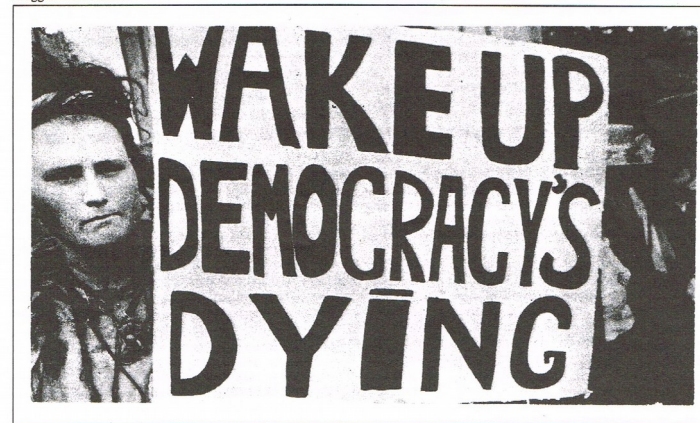 WAKE UP
DEMOCRACY'S
DYING